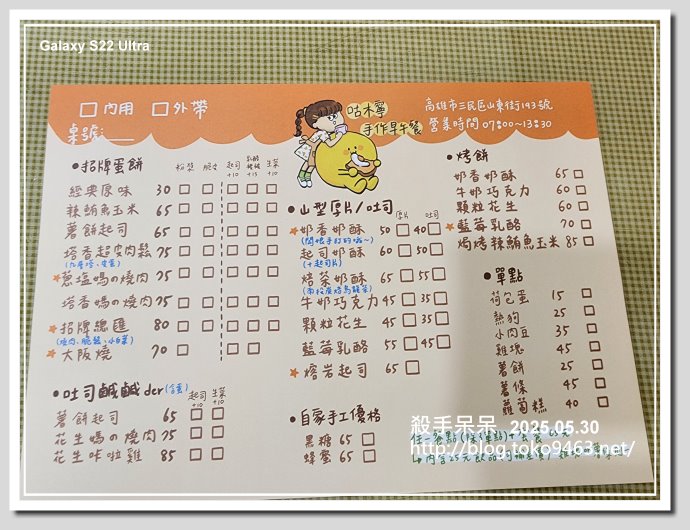 Galaxy S22 Ultra
□內用 □外帶
桌號:
咕檸
手作早午餐
高雄市三民區山東街193號
營業時間 07:00~13:30
•招牌蛋餅
粉漿 脆皮 起司+10 生菜+10
經典原味 30
辣鮪魚玉米 65
薯餅起司 65
塔香起皮肉鬆 75
★蔥塩媽の燒肉 75
塔香媽の燒肉 75
★招牌總匯 80
★大阪燒 70
•吐司鹹鹹der
起司+10 生菜+10
薯餅起司 65
花生媽の燒肉 75
花生咔啦雞 85
•山型厚片/吐司
厚片 吐司
★奶香奶酥 50 40
起司奶酥 60 50
(+起司片)
焙茶奶酥 65 55
牛奶巧克力 45 35
顆粒花生 45 35
藍莓乳酪 55 45
★熔岩起司 65
•自家手工優格
黑糖 65
蜂蜜 65
•烤餅
奶香奶酥 65
牛奶巧克力 60
顆粒花生 60
★藍莓乳酪 70
焗烤辣鮪魚玉米 85
•單點
荷包蛋 15
熱狗 25
小肉豆 35
雞塊 45
薯餅 25
薯條 45
蘿蔔糕 40
殺手呆呆 2025.05.30
http://blog.toko9463.net/